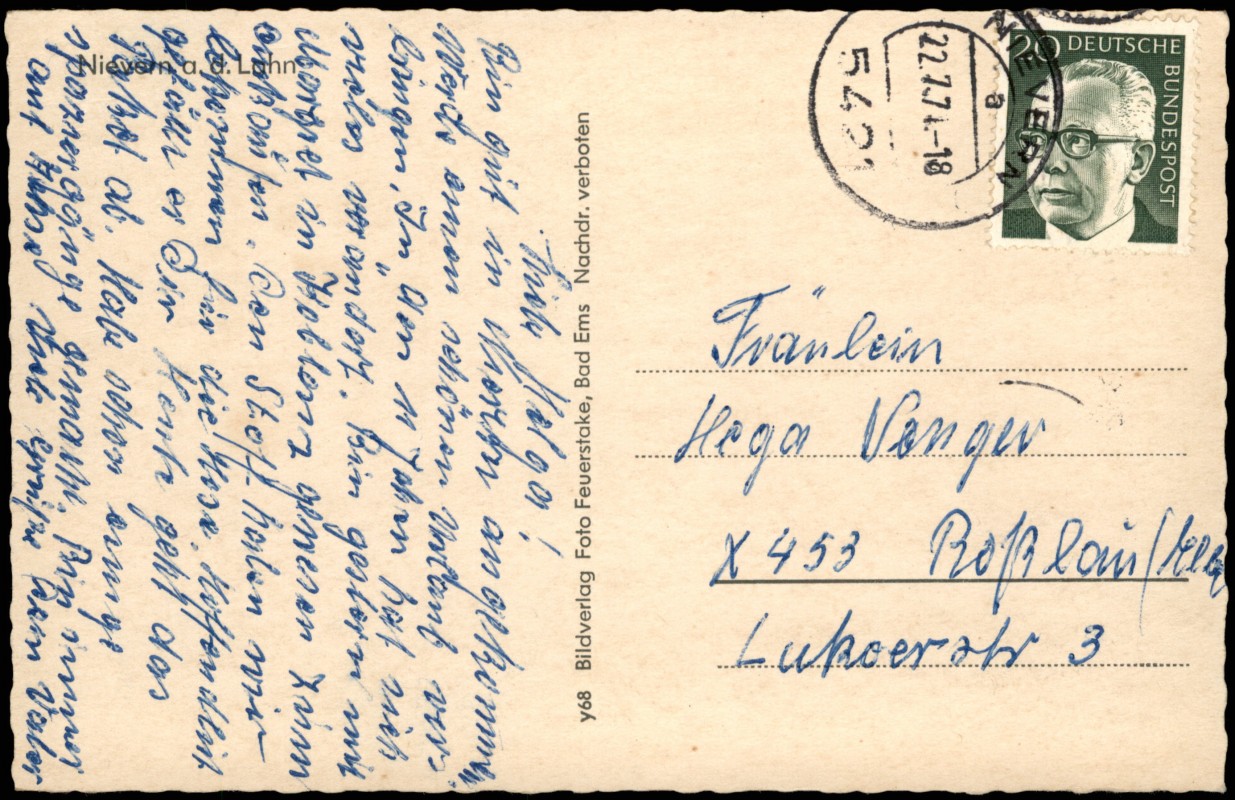 Nievern a. d. Lahn
Liebe Helga!
Bin gut in Nievern angekommen.
Werde einen schönen Urlaub ver-
bringen. In den 11 Jahren hat sich
vieles verändert. Bin gestern mit
in Koblenz gewesen zum
einkaufen. Den Stoff haben wir
genommen für die Hose. Hoffentlich
gefällt er Dir. Heute geht das
ab. Habe schon einige
Spaziergänge gemacht. Bin immer
auf
viele Grüße Dein Vater
y68 Bildverlag Foto Feuerstake, Bad Ems Nachdr. verboten
5421 NIEVERN
a
22.7.71-18
20 DEUTSCHE
BUNDESPOST
Fräulein
Hega Venger
X 453 Roßlau/Elbe
Lukoerstr 3